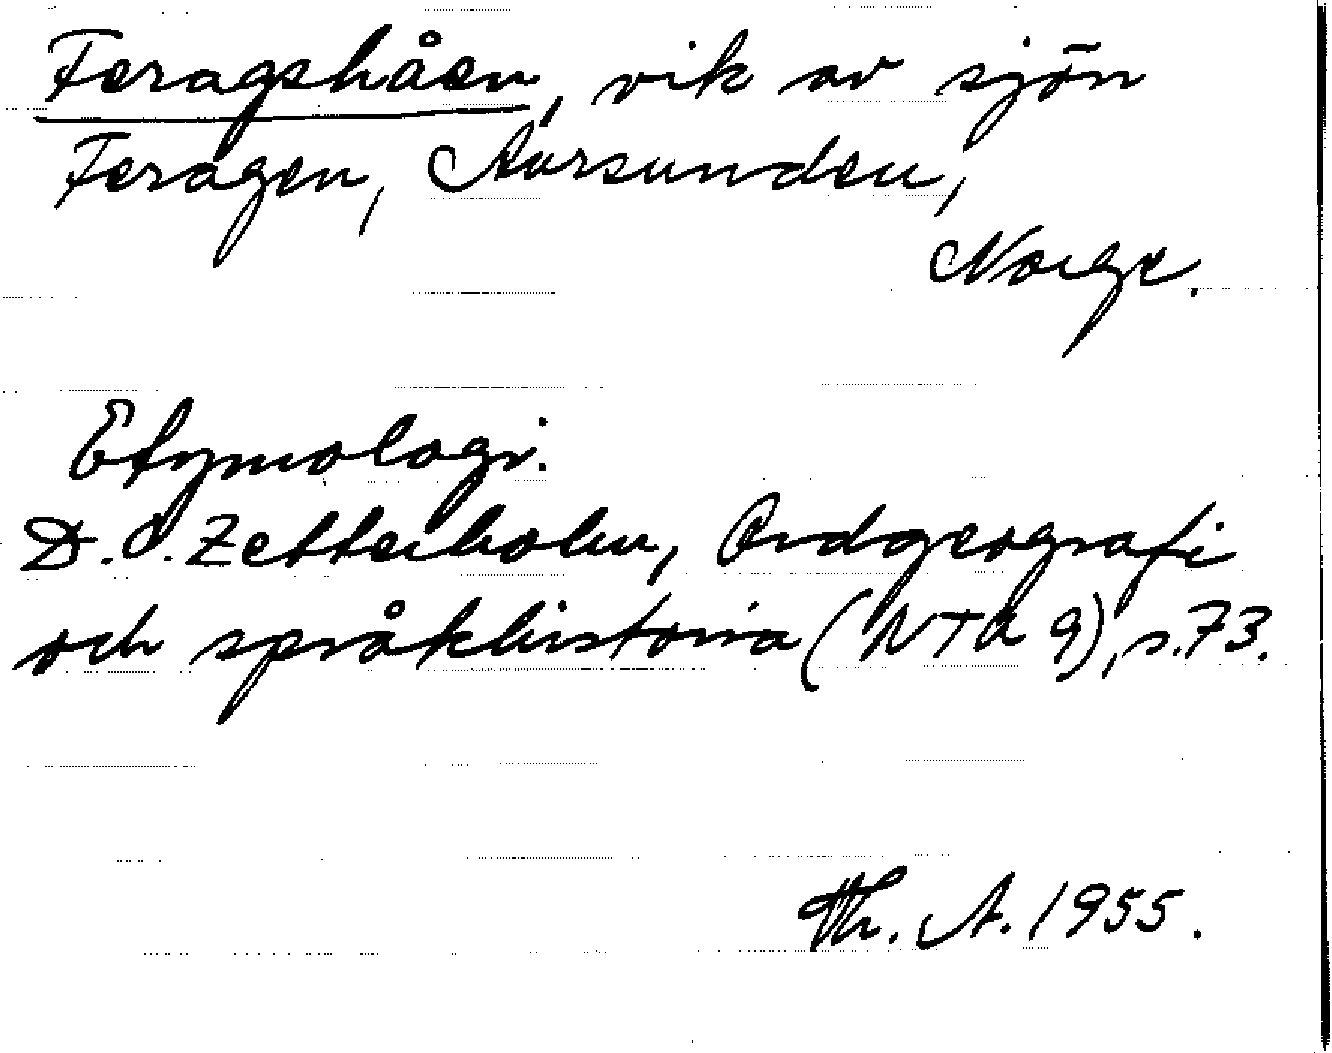 Feragshåen, vik av sjön
Feragen, Aursunden,
Norge.
Etymologi.
D. O. Zetterholm, Ordgeografi
och språkhistoria (NTA 9), s. 73.
Th. A. 1955.